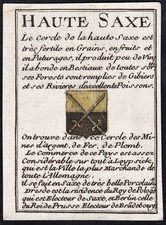 HAUTE SAXE
Le Cercle de la haute Saxe est
très fertile en Grains, en fruits et
en Paturages, il produit peu de Vin
il abonde en Bestiaux de toutes sor-
tes Forests sont remplies de Gibiers
et ses Rivieres d'excellents Poissons.
On trouve dans ce Cercle des Mi-
nes d'argent, de Fer, de Plomb.
Le Commerce de ce Pays est assez
Considerable sur tout à Leypsick,
qui est la Ville la plus Marchande de
toute l'Allemagne.
il se fait en Saxe de très belle Porcelaine
Dresde est la residence du Roy de Pologne
qui est Electeur de Saxe, et Berlin celle
du Roi de Prusse Electeur de Brandebourg